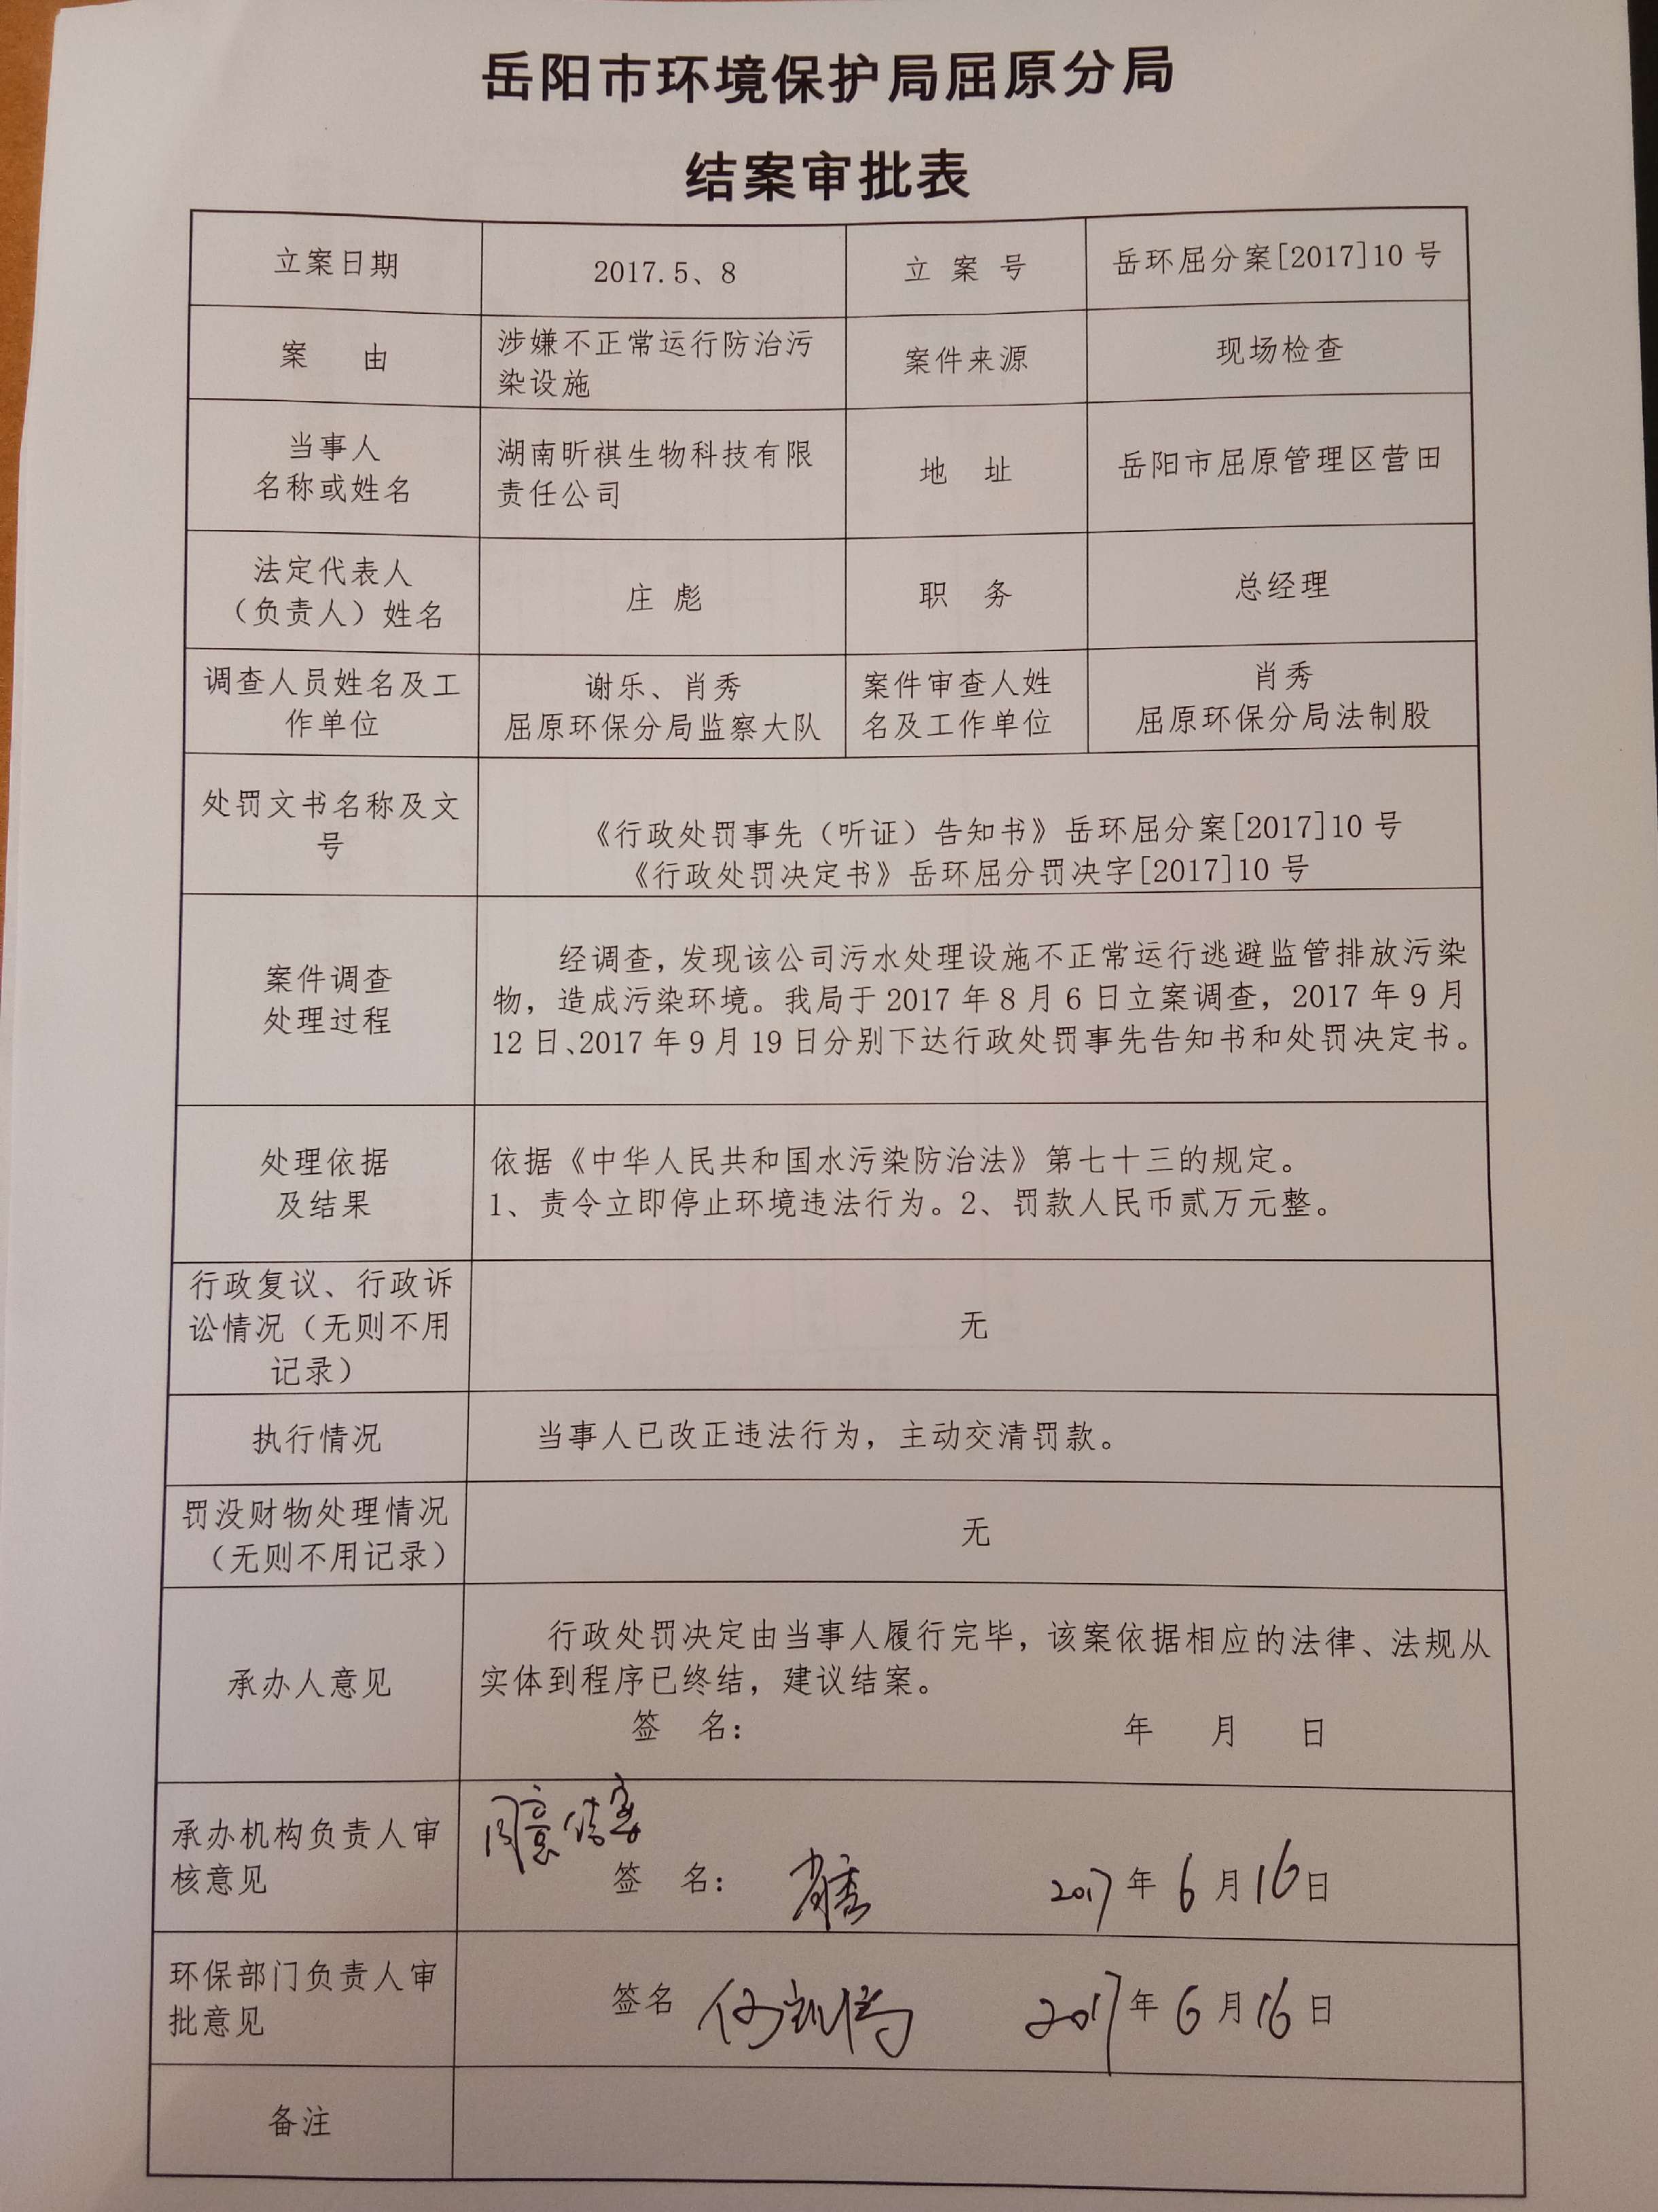 岳阳市环境保护局屈原分局
结案审批表
立案日期
2017.5、8
立 案 号
岳环屈分案[2017]10 号
案 由
涉嫌不正常运行防治污
染设施
案件来源
现场检查
当事人
名称或姓名
湖南昕祺生物科技有限
责任公司
地 址
岳阳市屈原管理区营田
法定代表人
（负责人）姓名
庄 彪
职 务
总经理
调查人员姓名及工
作单位
谢乐、肖秀
屈原环保分局监察大队
案件审查人姓
名及工作单位
肖秀
屈原环保分局法制股
处罚文书名称及文
号
《行政处罚事先（听证）告知书》岳环屈分案[2017]10 号
《行政处罚决定书》岳环屈分罚决字[2017]10 号
案件调查
处理过程
经调查，发现该公司污水处理设施不正常运行逃避监管排放污染
物，造成污染环境。我局于 2017 年 8 月 6 日立案调查，2017 年 9 月
12 日、2017 年 9 月 19 日分别下达行政处罚事先告知书和处罚决定书。
处理依据
及结果
依据《中华人民共和国水污染防治法》第七十三的规定。
1、责令立即停止环境违法行为。2、罚款人民币贰万元整。
行政复议、行政诉
讼情况（无则不用
记录）
无
执行情况
当事人已改正违法行为，主动交清罚款。
罚没财物处理情况
（无则不用记录）
无
承办人意见
行政处罚决定由当事人履行完毕，该案依据相应的法律、法规从
实体到程序已终结，建议结案。
签 名： 年 月 日
承办机构负责人审
核意见
同意结案
签 名： 肖秀 2017 年 6 月 16 日
环保部门负责人审
批意见
签名 2017 年 6 月 16 日
备注